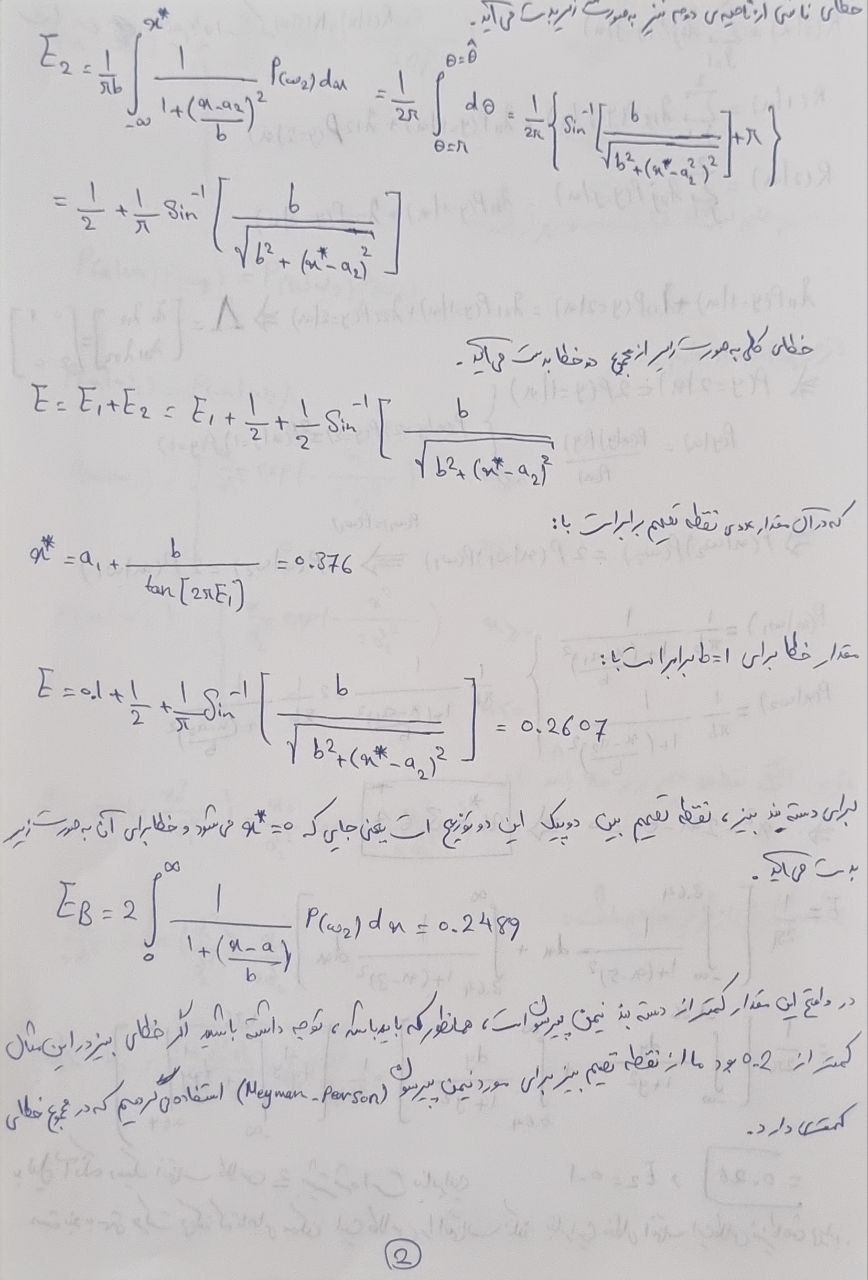 خطای ناشی از ناحیه‌ی دوم نیز به صورت زیر بدست می‌آید.
E₂ = 1/πb ∫_{-∞}^{x*} 1/(1+((x-a₂)/b)²) P(ω₂) dx = 1/2π ∫_{θ=π}^{θ=θ̂} dθ = 1/2π { Sin⁻¹[ b/√(b²+(x*-a₂²)²) ] + π }
= 1/2 + 1/π Sin⁻¹[ b/√(b²+(x*-a₂)²) ]
خطای کلی به صورت زیر از مجموع دو خطا بدست می‌آید.
E = E₁+E₂ = E₁ + 1/2 + 1/2 Sin⁻¹[ b/√(b²+(x*-a₂)²) ]
که در آن مقدار عددی نقطه تصمیم برابر است با:
x* = a₁ + b/tan[2πE₁] = 0.376
مقدار خطا برای b=1 برابر است با:
E = 0.1 + 1/2 + 1/π Sin⁻¹[ b/√(b²+(x*-a₂)²) ] = 0.2607
برای دسته بند بیز، نقطه تصمیم بین دو پیک این دو توزیع است یعنی جایی که x*=0 می‌شود و خطا برای آن به صورت زیر
بدست می‌آید.
E_B = 2 ∫_0^∞ 1/(1+((x-a)/b)) P(ω₂) dx = 0.2489
در واقع این مقدار کمتر از دسته بند نیمن پیرسون است، همانطور که باید باشد، توجه داشته باشید اگر خطای بیز در این مثال
کمتر از 0.2 بود ما از نقطه تصمیم بیز برای مورد نیمن پیرسون (Neyman-Pearson) استفاده می‌کردیم که در مجموع خطای
کمتری دارد.
2